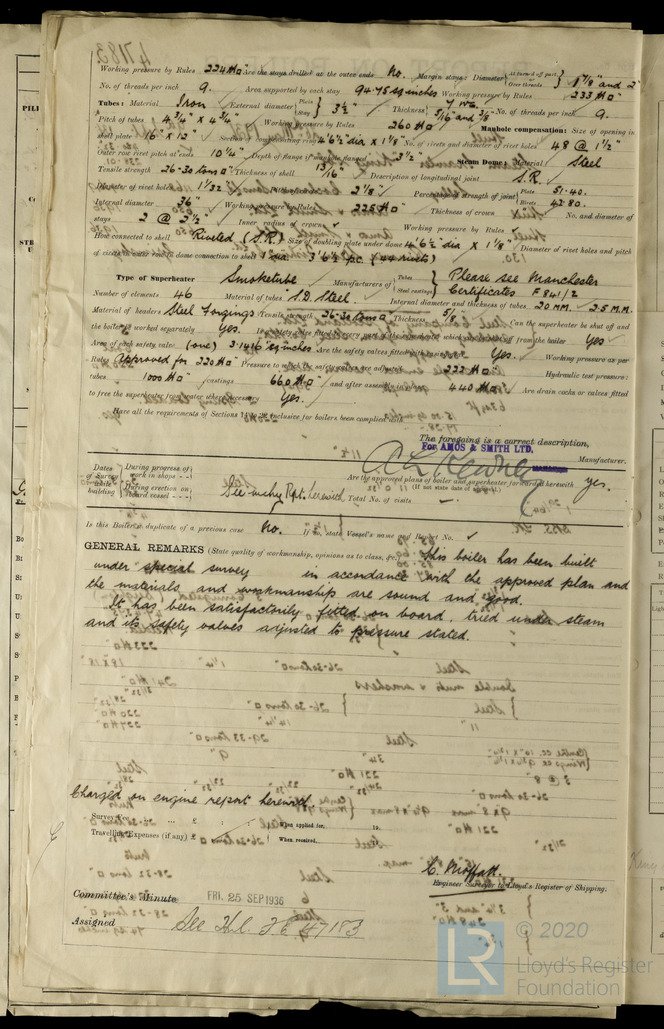 Working pressure by Rules 224 #□" Are the stays drilled at the outer ends No. Margin stays: Diameter { At turned off part, or Over threads } 1 7/8" and 2"
No. of threads per inch 9. Area supported by each stay 94.75 sq inches Working pressure by Rules 233 #□"
Tubes: Material Iron External diameter { Plain Stay } 3 1/2" Thickness { 7 WG. 5/16 and 3/8 No. of threads per inch 9.
Pitch of tubes 4 3/4" x 4 3/4" Working pressure by Rules 260 #□" Manhole compensation: Size of opening in
shell plate 16" x 12" 4' 6 1/2 dia x 1 1/8" No. of rivets and diameter of rivet holes 48 @ 1 1/2"
Outer row rivet pitch at ends 10 1/4" Depth of flange if manhole flanged 3 1/2" Steam Dome: Material Steel
Tensile strength 26-30 tons □" Thickness of shell 13/16" Description of longitudinal joint S.R.
Diameter of rivet holes 1 1/32" Pitch of rivets 2 1/8" Percentage strength of joint { Plate 51.40. Rivets 42.80.
Internal diameter 36" Working pressure by Rules 225 #□" Thickness of crown No. and diameter of
stays 2 @ 2 1/2" Inner radius of crown Working pressure by Rules
How connected to shell Riveted (S.R.) Size of doubling plate under dome 4' 6 1/2 dia x 1 1/8" Diameter of rivet holes and pitch
of rivets in dome connection to shell 1" dia. 3' 6 1/2 pc. (44 rivets)
Type of Superheater Smoketube Manufacturers of { Tubes Steel castings } Please see Manchester
Certificates F 841/2
Number of elements 46 Material of tubes S.D. Steel. Internal diameter and thickness of tubes 20 MM. 2.5 M.M.
Material of headers Steel Forgings Tensile strength 26-30 tons □" Thickness 5/8 Can the superheater be shut off and
the boiler be worked separately Yes. Is a safety valve fitted to every part of the superheater which can be shut off from the boiler Yes
Area of each safety valve (one) 3.1416 sq inches Are the safety valves fitted with easing gear Yes. Working pressure as per
Rules Approved for 220 #□" Pressure to which the safety valves are adjusted 222 #□" Hydraulic test pressure:
tubes 1000 #□" castings 660 #□" and after assembly in place 440 #□" Are drain cocks or valves fitted
to free the superheater from water where necessary Yes.
Have all the requirements of Sections inclusive for boilers been complied with
The foregoing is a correct description,
For AMOS & SMITH LTD. Manufacturer.
Dates of Survey while building { During progress of work in shops - - } { During erection on board vessel - - - } See mchy Rpt. herewith Are the approved plans of boiler and superheater forwarded herewith yes.
(If not state date of approval.)
Total No. of visits
Is this Boiler a duplicate of a previous case No. If so, state Vessel's name and Report No.
GENERAL REMARKS (State quality of workmanship, opinions as to class, &c. This boiler has been built
under special survey in accordance with the approved plan and
the materials and workmanship are sound and good.
It has been satisfactorily fitted on board, tried under steam
and its safety valves adjusted to pressure stated.
Charged on engine report herewith
Survey Fee ... ... £ : : When applied for, 19
Travelling Expenses (if any) £ : : When received, 19
C. Moffatt.
Engineer Surveyor to Lloyd's Register of Shipping.
Committee's Minute FRI. 25 SEP 1936
Assigned See Hl. F.E. 47183
LR
© 2020
Lloyd's Register
Foundation